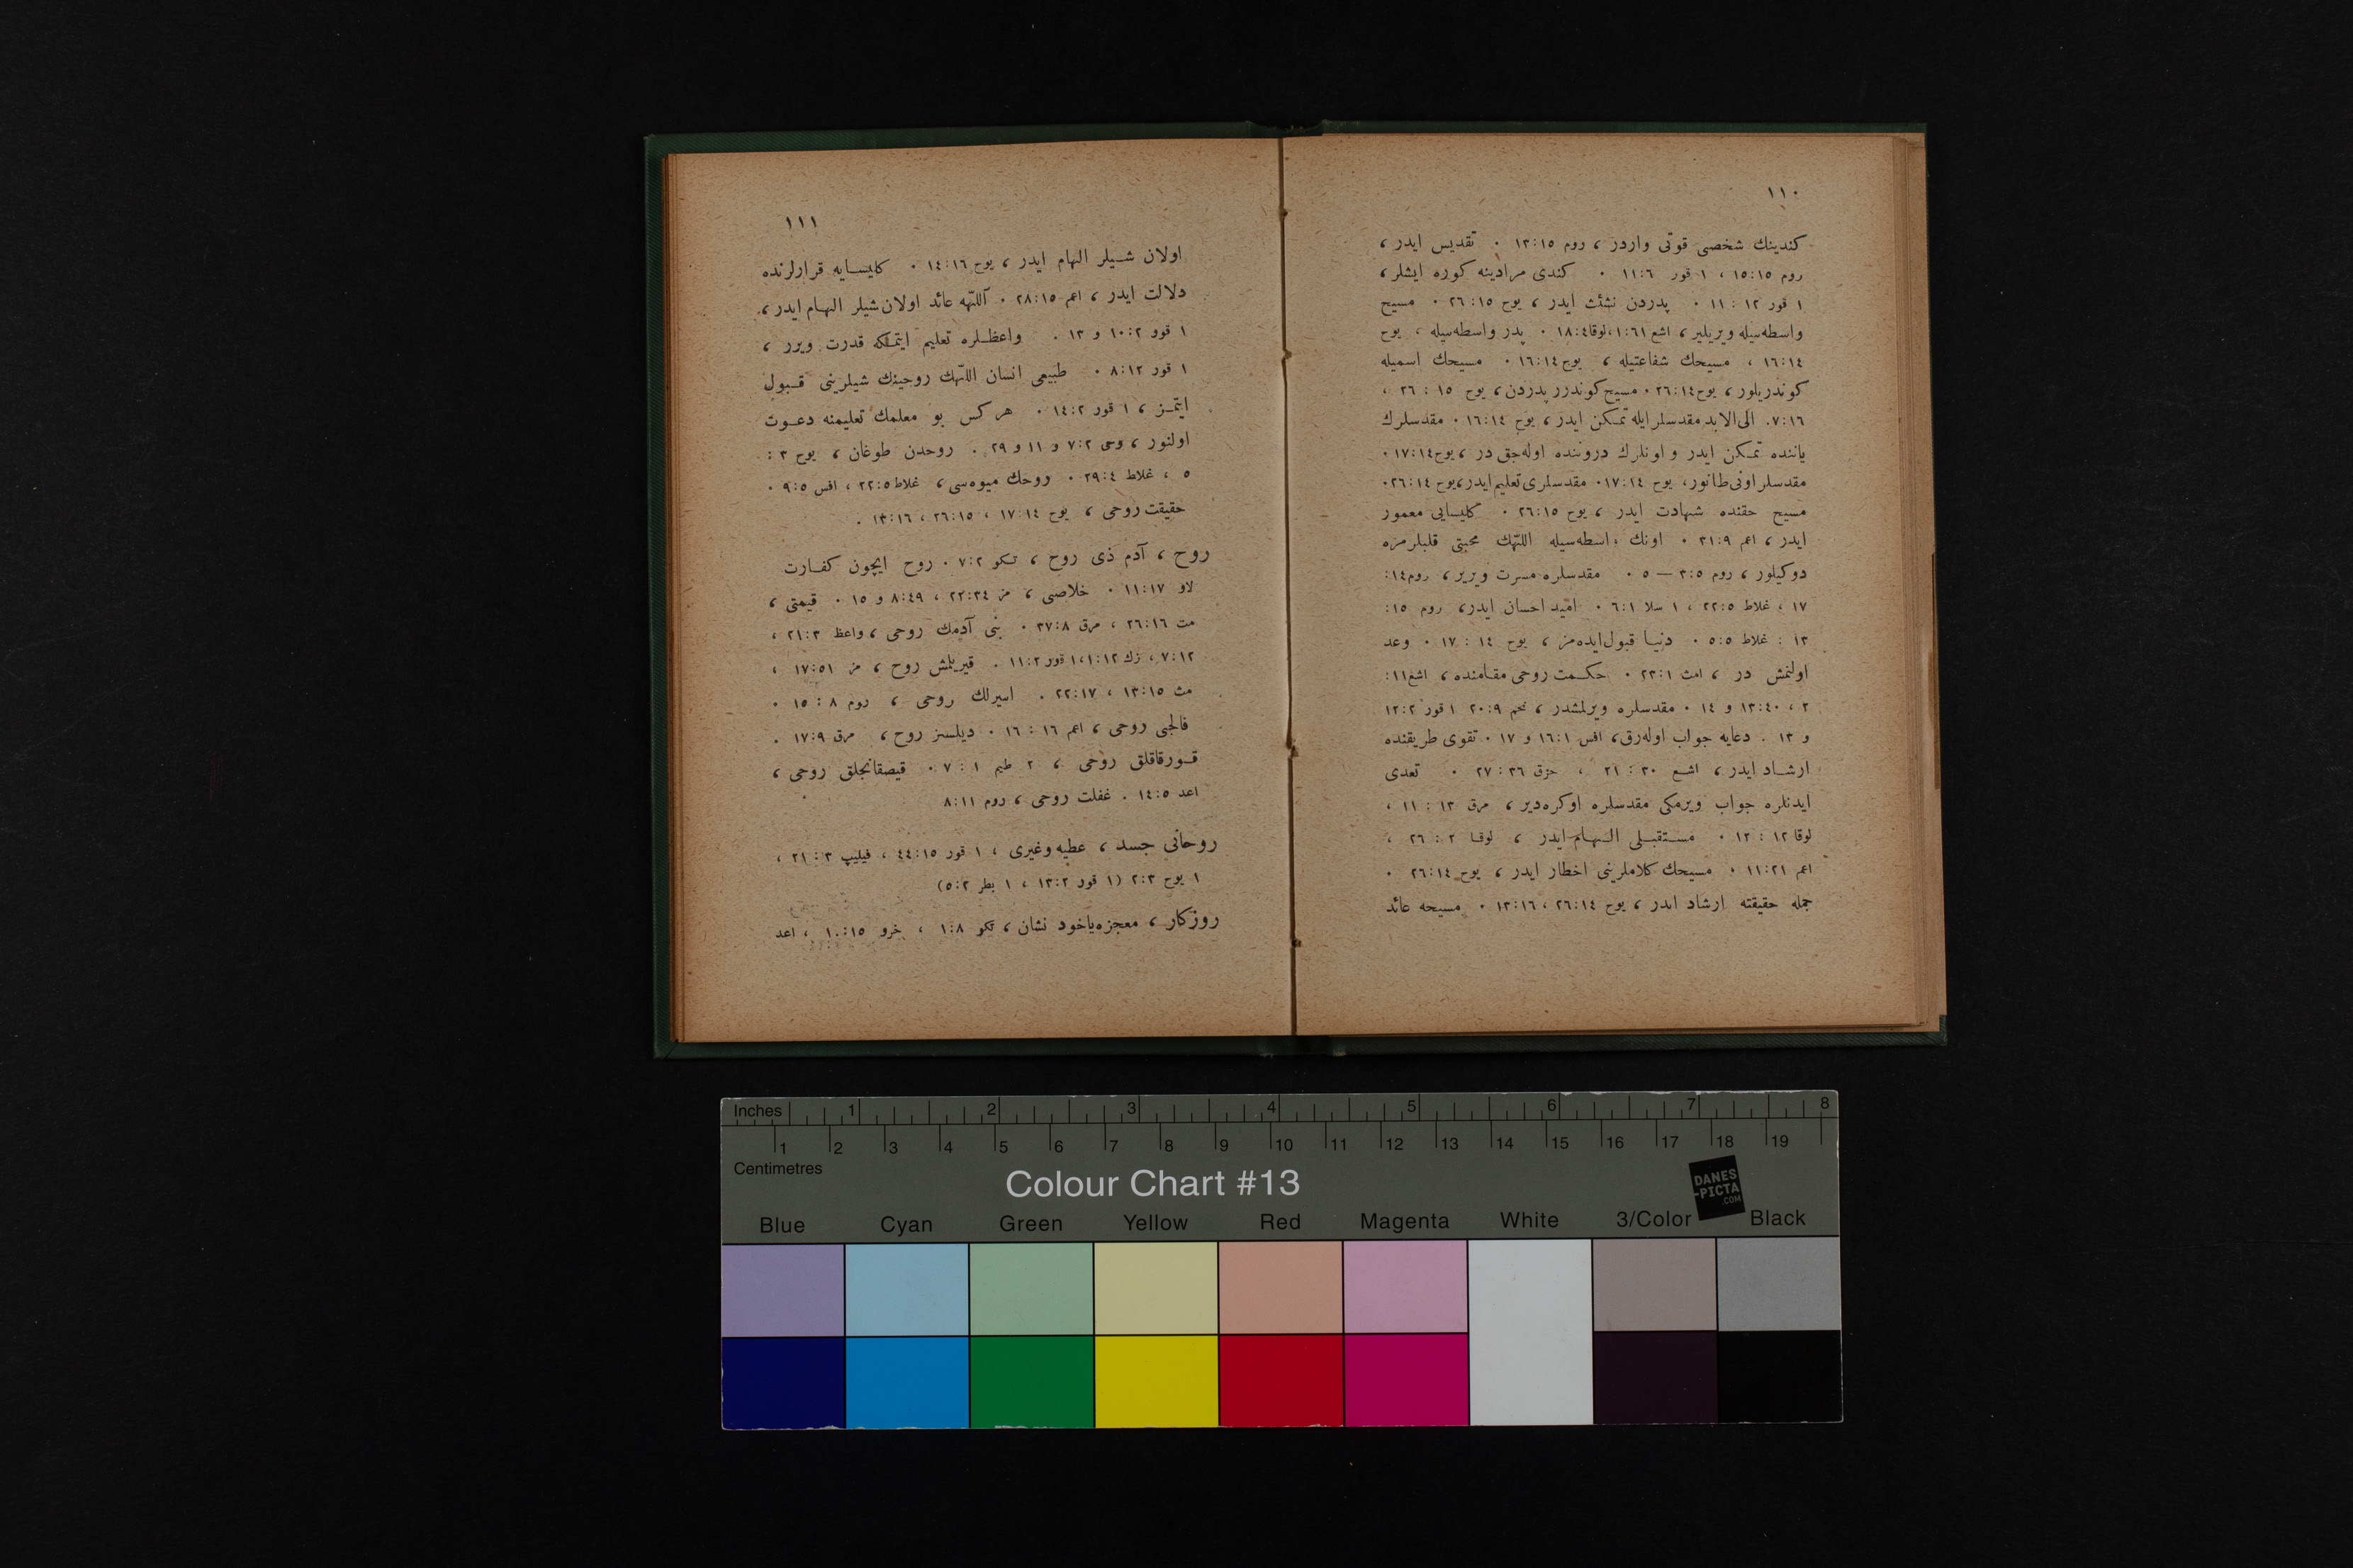 ١١٠
كندينك شخصی قوتی واردر ، روم ١٥:١٣ . تقديس ايدر ،
روم ١٥:١٥ ، ١ قور ٦:١١ . كندی مرادينه كوره ايشلر ،
١ قور ١٢ : ١١ . پدردن نشئت ايدر ، يوح ١٥:٢٦ . مسيح
واسطه‌سيله ويريلير ، اشع ٦١:١ ، لوقا ٤:١٨ . پدر واسطه‌سيله ، يوح
١٤:١٦ ، مسيحك شفاعتيله ، يوح ١٤:١٦ . مسيحك اسميله
كوندريلور ، يوح ١٤:٢٦ . مسيح كوندرر پدردن ، يوح ١٥ : ٢٦ ،
١٦:٧ . الى الابد مقدسلر ايله تمكن ايدر ، يوح ١٤:١٦ . مقدسلرك
ياننده تمكن ايدر و اونلرك دروننده اوله‌جق در ، يوح ١٤:١٧ .
مقدسلر اونی طانور ، يوح ١٤:١٧ . مقدسلری تعليم ايدر ، يوح ١٤:٢٦ .
مسيح حقنده شهادت ايدر ، يوح ١٥:٢٦ . كليسايی معمور
ايدر ، اعم ٩:٣١ . اونك واسطه‌سيله اللّٰهك محبتی قلبلرمزه
دوكيلور ، روم ٥:٣ — ٥ . مقدسلره مسرت ويرير ، روم ١٤:
١٧ ، غلاط ٥:٢٢ ، ١ سلا ١:٦ . اميد احسان ايدر ، روم ١٥:
١٣ : غلاط ٥:٥ . دنيا قبول ايده‌مز ، يوح ١٤ : ١٧ . وعد
اولنمش در ، امث ١:٢٣ . حكمت روحی مقامنده ، اشع ١١:
٢ ، ٤٠:١٣ و ١٤ . مقدسلره ويرلمشدر ، نحم ٩:٢٠ ١ قور ٢:١٢
و ١٣ . دعايه جواب اوله‌رق ، افس ١:١٦ و ١٧ . تقوی طريقنده
ارشاد ايدر ، اشع ٣٠ : ٢١ ، حزق ٣٦ : ٢٧ . تعدی
ايدنلره جواب ويرمكی مقدسلره اوكره‌دير ، مرق ١٣ : ١١ ،
لوقا ١٢ : ١٢ . مستقبلی الهام ايدر ، لوقا ٢ : ٢٦ ،
اعم ٢١:١١ . مسيحك كلاملرينی اخطار ايدر ، يوح ١٤:٢٦ .
جمله حقيقته ارشاد ايدر ، يوح ١٤:٢٦ ، ١٦:١٣ . مسيحه عائد
١١١
اولان شيلر الهام ايدر ، يوح ١٦:١٤ . كليسايه قرارلرنده
دلالت ايدر ، اعم ١٥:٢٨ . آللّٰهه عائد اولان شيلر الهام ايدر ،
١ قور ٢:١٠ و ١٣ . واعظلره تعليم ايتمكه قدرت ويرر ،
١ قور ١٢:٨ . طبيعی انسان اللّٰهك روحينك شيلرينی قبول
ايتمز ، ١ قور ٢:١٤ . هركس بو معلمك تعليمنه دعوت
اولنور ، وحی ٢:٧ و ١١ و ٢٩ . روحدن طوغان ، يوح ٣ :
٥ ، غلاط ٤:٢٩ . روحك ميوه‌سی ، غلاط ٥:٢٢ ، افس ٥:٩ .
حقيقت روحی ، يوح ١٤:١٧ ، ١٥:٢٦ ، ١٦:١٣ .
روح ، آدم ذی روح ، تكو ٢:٧ . روح ايچون كفارت
لاو ١٧:١١ . خلاصی ، مز ٣٤:٢٢ ، ٤٩:٨ و ١٥ . قيمتی ،
مت ١٦:٢٦ ، مرق ٨:٣٧ . بنی آدمك روحی ، واعظ ٣:٢١ ،
١٢:٧ ، زك ١٢:١ ، ١ قور ٢:١١ . قيريلمش روح ، مز ٥١:١٧ ،
مث ١٥:١٣ ، ١٧:٢٢ . اسيرلك روحی ، روم ٨ : ١٥ .
فالجی روحی ، اعم ١٦ : ١٦ . ديلسز روح ، مرق ٩:١٧ .
قورقاقلق روحی ، ٢ طيم ١ : ٧ . قيصقانجلق روحی ،
اعد ٥:١٤ . غفلت روحی ، روم ١١:٨
روحانی جسد ، عطيه وغيری ، ١ قور ١٥:٤٤ ، فيليپ ٣ : ٢١ ،
١ يوح ٣:٢ (١ قور ٢:١٣ ، ١ بطر ٢:٥)
روزكار ، معجزه ياخود نشان ، تكو ٨:١ ، خرو ١٥:١٠ ، اعد
Inches 1 2 3 4 5 6 7 8
1 2 3 4 5 6 7 8 9 10 11 12 13 14 15 16 17 18 19
Centimetres
Colour Chart #13
DANES
-PICTA
.COM
Blue Cyan Green Yellow Red Magenta White 3/Color Black